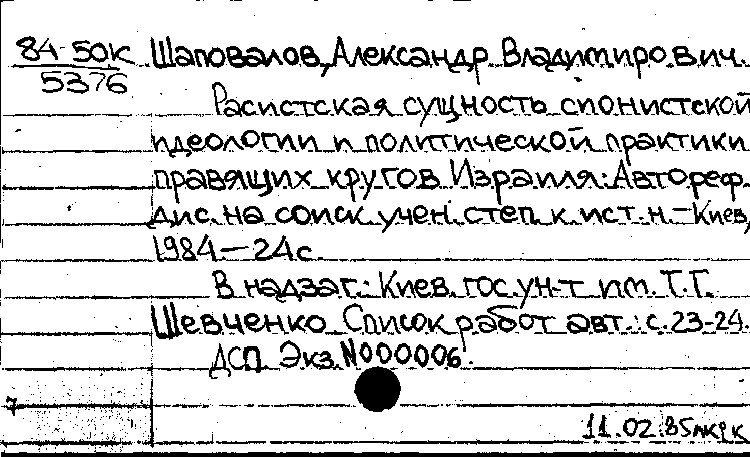 84-50к Шаповалов, Александр Владимирович.
5376
Расистская сущность сионистской
идеологии и политической практики
правящих кругов Израиля: Автореф.
дис. на соиск. учен. степ. к. ист. н. - Киев,
1984. - 24с.
В надзаг.: Киев. гос. ун-т им. Т.Г.
Шевченко. Список работ авт.: с. 23-24.
ДСП Экз. N000006.
7
11.02.85